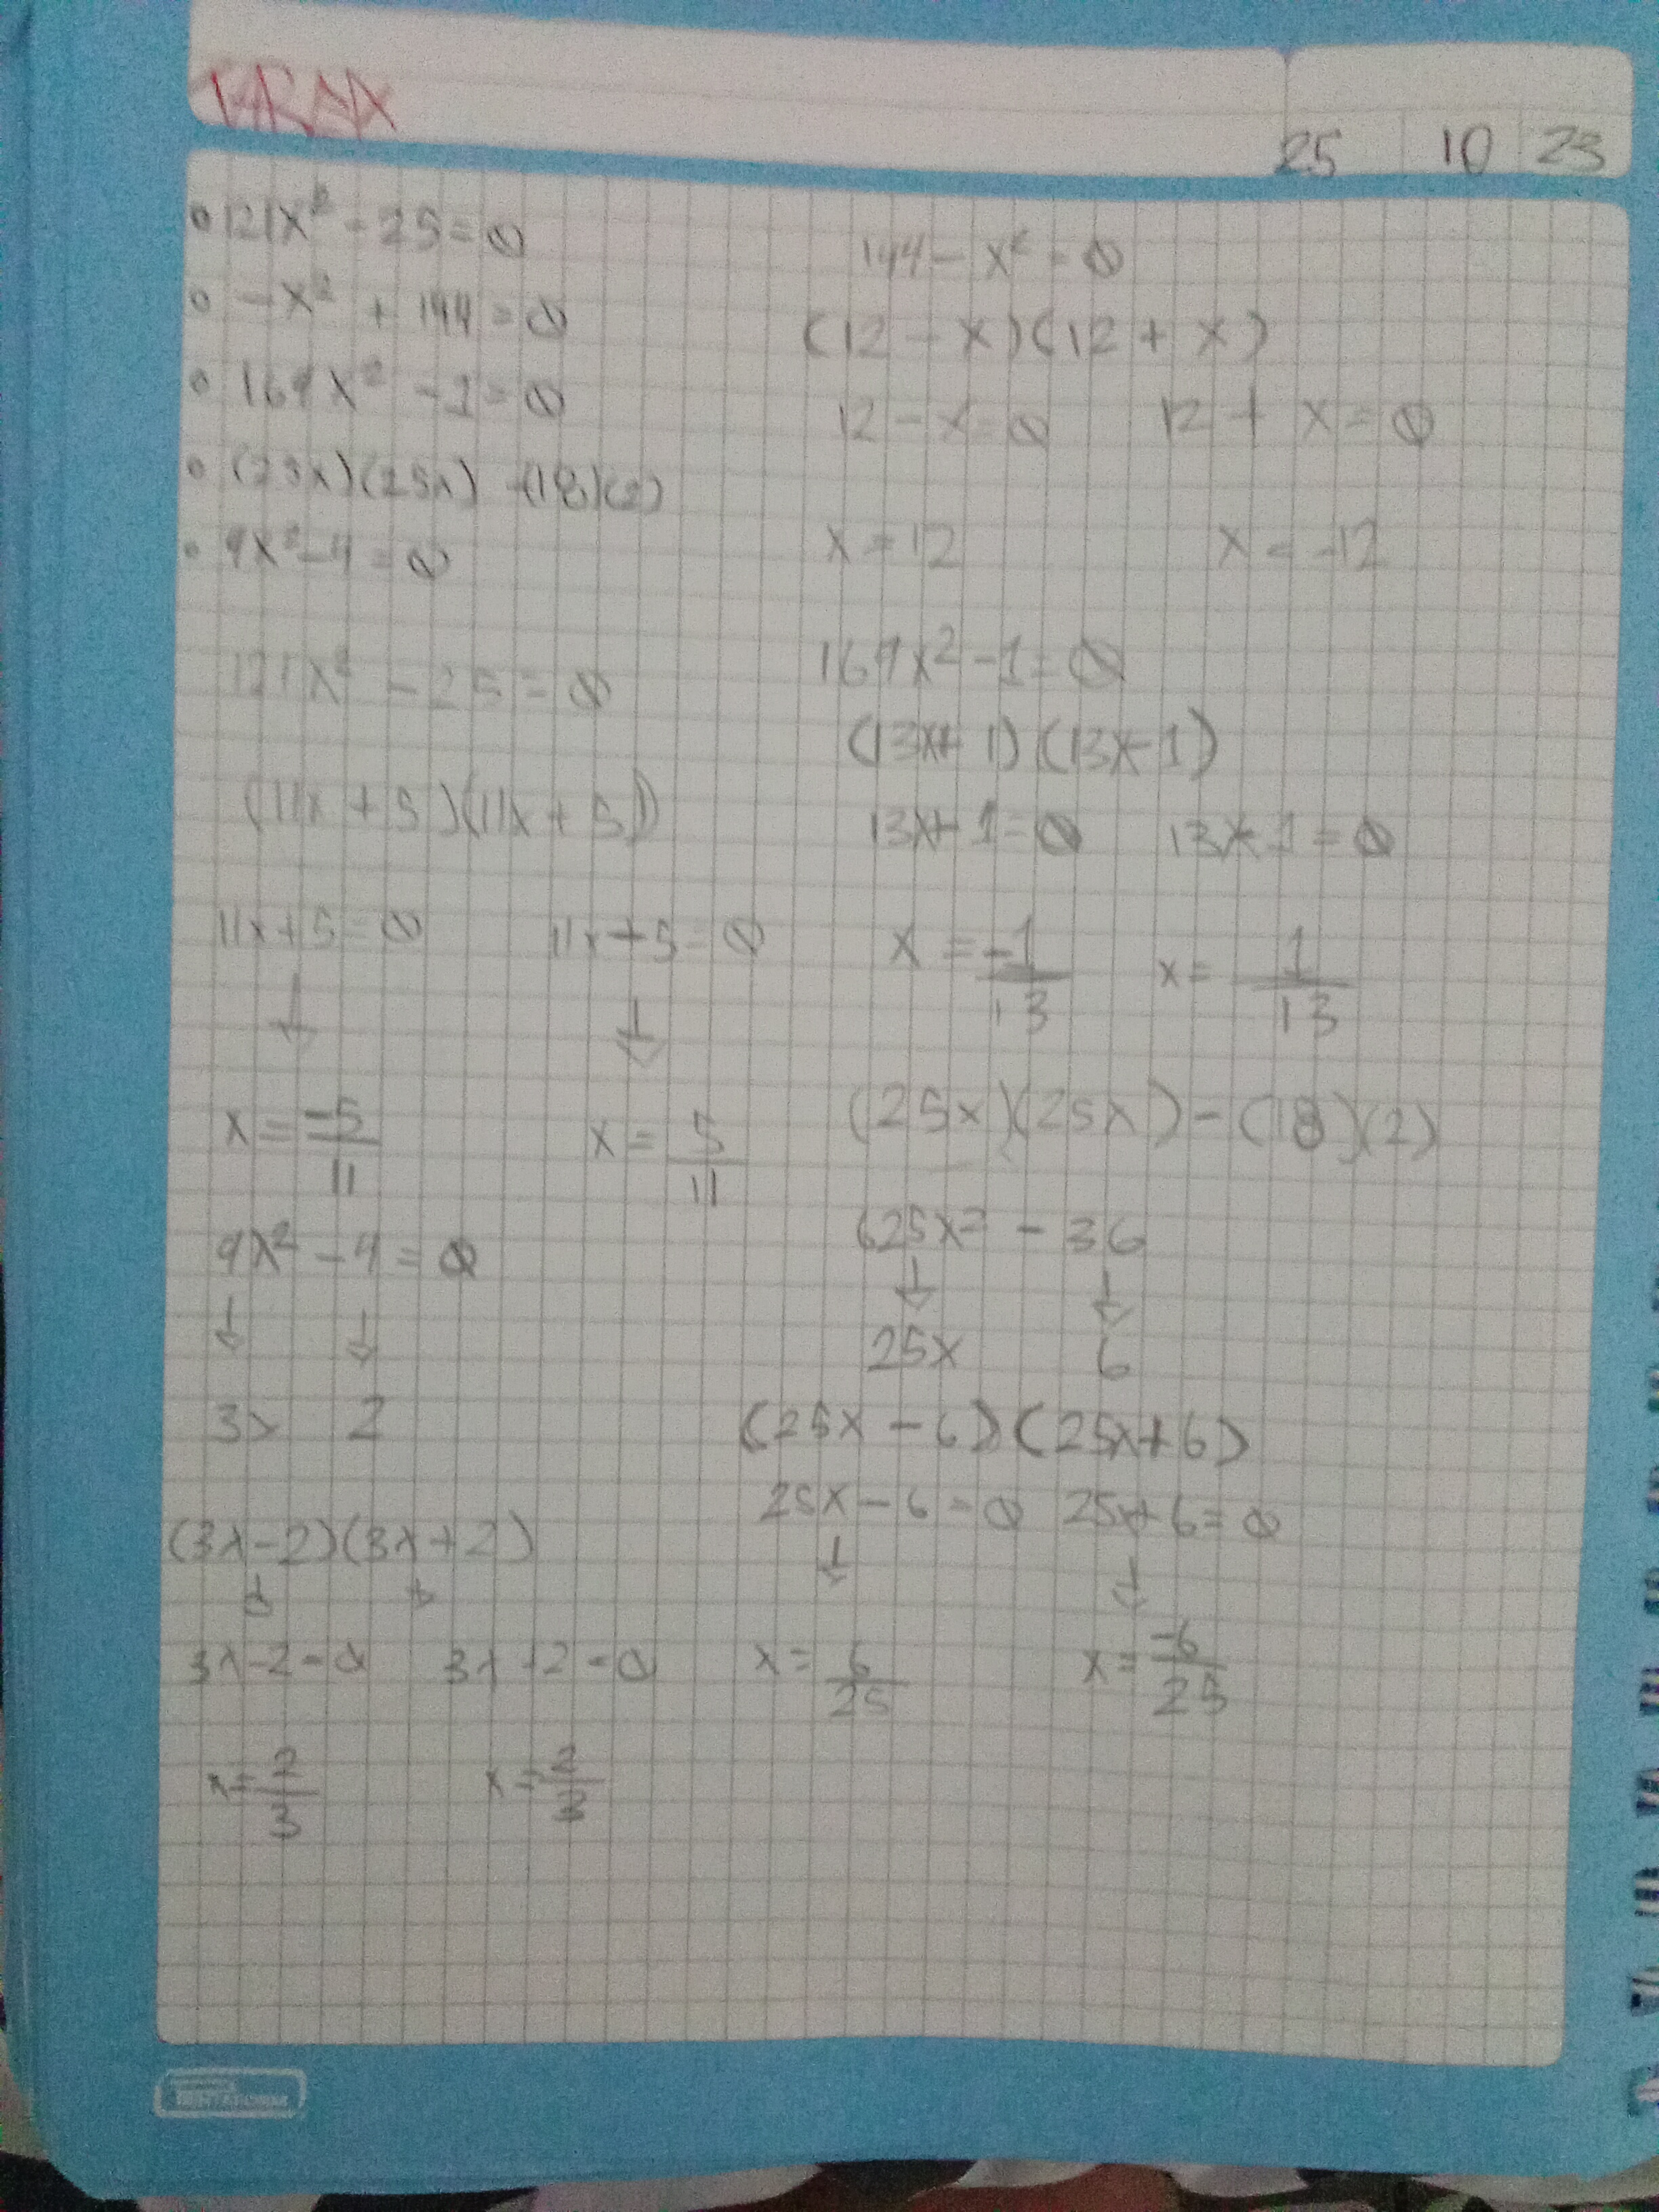 TAREA
25 10 23
• 121x² - 25 = 0
• -x² + 144 = 0
• 169x² - 1 = 0
• (25x)(25x) - (18)(2)
• 9x² - 4 = 0
121x² - 25 = 0
(11x + 5)(11x + 5)
11x + 5 = 0 11x + 5 = 0
↓ ↓
x = -5/11 x = 5/11
9x² - 4 = 0
↓ ↓
3x 2
(3x - 2)(3x + 2)
↓ ↓
3x - 2 = 0 3x + 2 = 0
x = 2/3 x = -2/3
144 - x² = 0
(12 - x)(12 + x)
12 - x = 0 12 + x = 0
x = 12 x = -12
169x² - 1 = 0
(13x + 1)(13x - 1)
13x + 1 = 0 13x - 1 = 0
x = -1/13 x = 1/13
(25x)(25x) - (18)(2)
625x² - 36
↓ ↓
25x 6
(25x - 6)(25x + 6)
25x - 6 = 0 25x + 6 = 0
↓ ↓
x = 6/25 x = -6/25